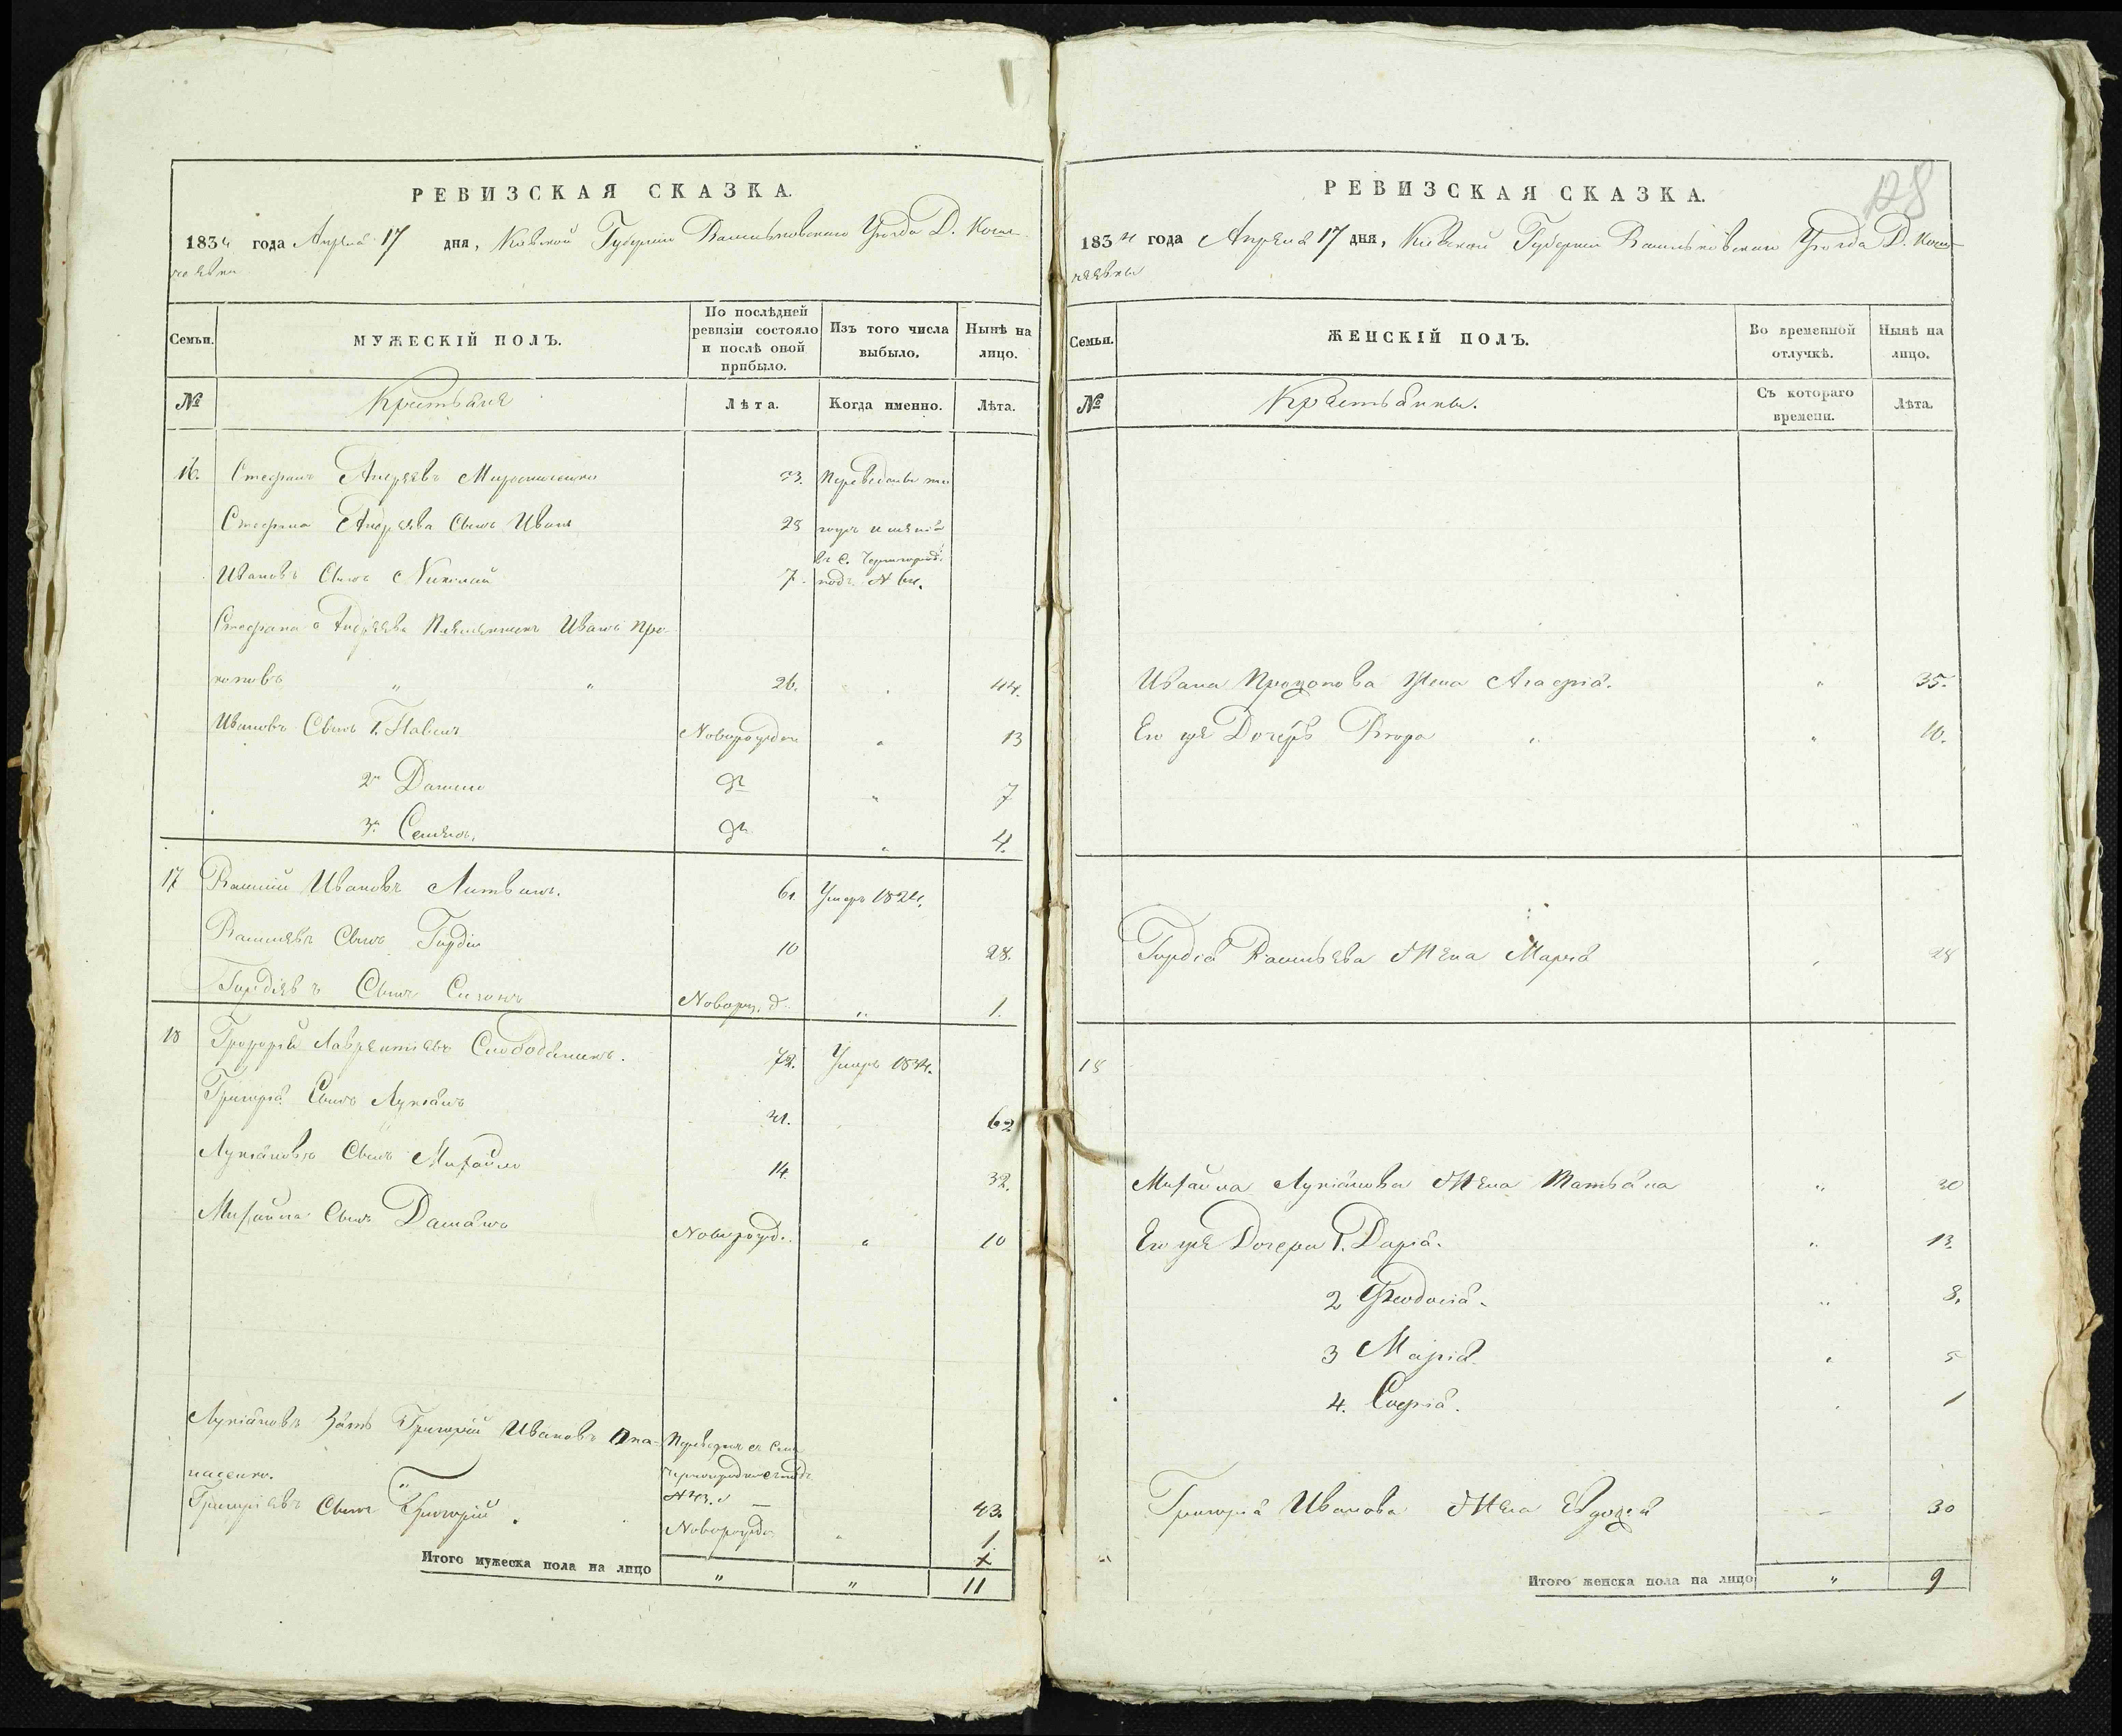 РЕВИЗСКАЯ СКАЗКА.
1834 года Апреля 17 дня, Кіевской Губерніи Васильковскаго Уѣзда Д.
Семьи.
МУЖЕСКІЙ ПОЛЪ.
По послѣдней ревизіи состояло и послѣ оной прибыло.
Изъ того числа выбыло.
Нынѣ на лицо.
№
Крестьяне
Лѣта.
Когда именно.
Лѣта.
16. Стефанъ Андреевъ
Стефана Андреева Сынъ Иванъ 28
Ивановъ Сынъ Николай 7. подъ №
Стефана Андреева Племянникъ Иванъ Про-
коповъ " " 26. " 44.
Ивановъ Сынъ 1. Павелъ Новорожден " 13
2й Данило дт " 7
3й Семенъ. дт " 4.
17 Василій Ивановъ Литвинъ. 61. Умеръ 1824.
Васильевъ Сынъ Гордій 10 28.
Гордіевъ Сынъ Новорожд. " 1.
18 Григорій Лаврентіевъ Слободяникъ. 72. Умеръ
Григорія Сынъ Лукіянъ 62
Лукіяновъ Сынъ Михайло 14. 32.
Михайла Сынъ Даміянъ Новорожд. " 10
Лукіяновъ Зять Григорій Ивановъ Опа-
насенко. " 43.
Григоріевъ Сынъ Григорій. Новорожд. " 1.
х
Итого мужеска пола на лицо " " 11
128
РЕВИЗСКАЯ СКАЗКА.
1834 года Апреля 17 дня, Кіевской Губерніи Васильковскаго Уѣзда Д.
Семьи.
ЖЕНСКІЙ ПОЛЪ.
Во временной отлучкѣ.
Нынѣ на лицо.
№
Крестьянки.
Съ котораго времени.
Лѣта.
Ивана Прокопова Жена Агафія. " 35.
Его же Дочерь " " 10.
Гордія Васильева Жена Марія " 28
18
Михайла Лукіянова Жена Татьяна " 30
Его же Дочери 1. Дарія. " 13.
2 Феодосія. " 8.
3 Марія. " 5
4. Софія. " 1
Григорія Иванова Жена Евдокія 30
Итого женска пола на лицо " 9